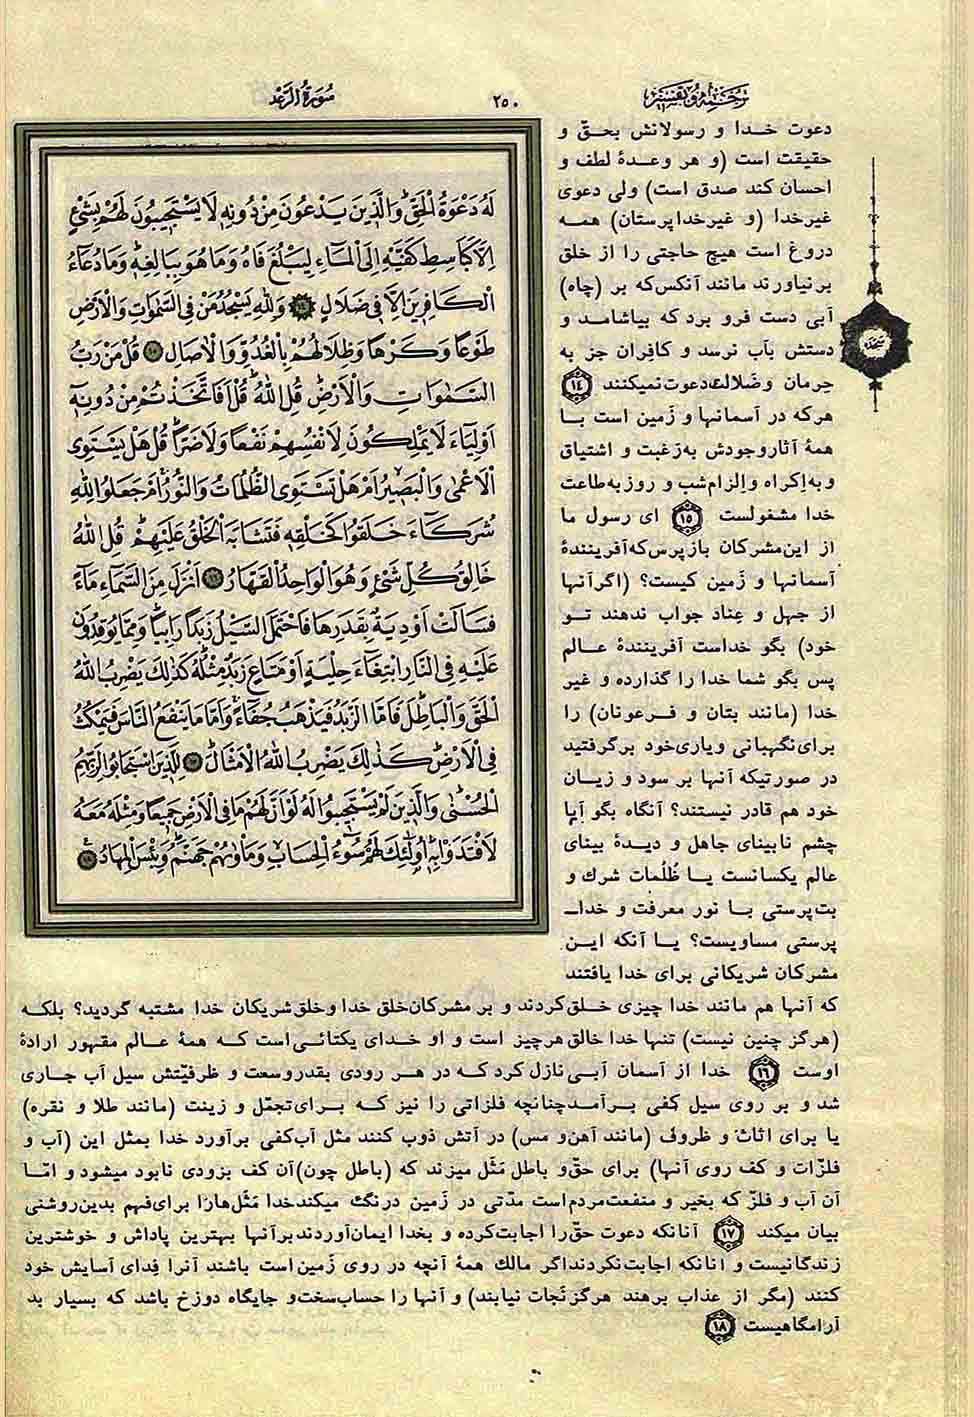 ترجمه و تفسیر
۲۵۰
سُورَةُ الرَّعْد
لَهُ دَعْوَةُ الْحَقِّ وَالَّذِينَ يَدْعُونَ مِنْ دُونِهِ لَا يَسْتَجِيبُونَ لَهُمْ بِشَيْءٍ
اِلَّا كَبَاسِطِ كَفَّيْهِ اِلَى الْمَاءِ لِيَبْلُغَ فَاهُ وَمَا هُوَ بِبَالِغِهِ وَمَا دُعَاءُ
الْكَافِرِينَ اِلَّا فِي ضَلَالٍ ۱٤ وَلِلّٰهِ يَسْجُدُ مَنْ فِي السَّمٰوَاتِ وَالْاَرْضِ
طَوْعًا وَكَرْهًا وَظِلَالُهُمْ بِالْغُدُوِّ وَالْاٰصَالِ ۱٥ قُلْ مَنْ رَبُّ
السَّمٰوَاتِ وَالْاَرْضِ قُلِ اللّٰهُ قُلْ اَفَاتَّخَذْتُمْ مِنْ دُونِهِ
اَوْلِيَاءَ لَا يَمْلِكُونَ لِاَنْفُسِهِمْ نَفْعًا وَلَا ضَرًّا قُلْ هَلْ يَسْتَوِي
الْاَعْمٰى وَالْبَصِيرُ اَمْ هَلْ تَسْتَوِي الظُّلُمَاتُ وَالنُّورُ اَمْ جَعَلُوا لِلّٰهِ
شُرَكَاءَ خَلَقُوا كَخَلْقِهِ فَتَشَابَهَ الْخَلْقُ عَلَيْهِمْ قُلِ اللّٰهُ
خَالِقُ كُلِّ شَيْءٍ وَهُوَ الْوَاحِدُ الْقَهَّارُ ۱٦ اَنْزَلَ مِنَ السَّمَاءِ مَاءً
فَسَالَتْ اَوْدِيَةٌ بِقَدَرِهَا فَاحْتَمَلَ السَّيْلُ زَبَدًا رَابِيًا وَمِمَّا يُوقِدُونَ
عَلَيْهِ فِي النَّارِ ابْتِغَاءَ حِلْيَةٍ اَوْ مَتَاعٍ زَبَدٌ مِثْلُهُ كَذٰلِكَ يَضْرِبُ اللّٰهُ
الْحَقَّ وَالْبَاطِلَ فَاَمَّا الزَّبَدُ فَيَذْهَبُ جُفَاءً وَاَمَّا مَا يَنْفَعُ النَّاسَ فَيَمْكُثُ
فِي الْاَرْضِ كَذٰلِكَ يَضْرِبُ اللّٰهُ الْاَمْثَالَ ۱٧ لِلَّذِينَ اسْتَجَابُوا لِرَبِّهِمُ
الْحُسْنٰى وَالَّذِينَ لَمْ يَسْتَجِيبُوا لَهُ لَوْ اَنَّ لَهُمْ مَا فِي الْاَرْضِ جَمِيعًا وَمِثْلَهُ مَعَهُ
لَافْتَدَوْا بِهِ اُولٰئِكَ لَهُمْ سُوءُ الْحِسَابِ وَمَأْوٰيهُمْ جَهَنَّمُ وَبِئْسَ الْمِهَادُ ۱٨
دعوت خدا و رسولانش بحقّ و
حقیقت است (و هر وعدهٔ لطف و
احسان کند صدق است) ولی دعوی
غیرخدا (و غیرخداپرستان) همه
دروغ است هیچ حاجتی را از خلق
برنیاورند مانند آنکس‌که بر (چاه)
آبی دست فرو برد که بیاشامد و
دستش بآب نرسد و کافِران جز به
حِرمان و ضَلالت دعوت نمیکنند ۱٤
هرکه در آسمانها و زَمین است با
همهٔ آثار وجودش به‌رَغبت و اشتیاق
و به‌اِکراه و اِلزام شب و روز به‌طاعت
خدا مشغولست ۱٥ ای رسول ما
از این‌مشرکان بازپرس‌که‌آفرینندهٔ
آسمانها و زَمین کیست؟ (اگرآنها
از جهل و عِناد جواب ندهند تو
خود) بگو خداست آفرینندهٔ عالم
پس بگو شما خدا را گذارده و غیر
خدا (مانند بتان و فرعونان) را
برای‌نگهبانی و یاری‌خود برگرفتید
در صورتیکه آنها بر سود و زیان
خود هم قادر نیستند؟ آنگاه بگو آیا
چشم نابینای جاهل و دیدهٔ بینای
عالم یکسانست یا ظُلُمات شرك و
بت‌پرستی با نور معرفت و خدا-
پرستی مساویست؟ یا آنکه این
مشرکان شریکانی برای خدا یافتند
که آنها هم مانند خدا چیزی خلق‌کردند و بر مشرکان‌خلق خدا و خلق‌شریکان خدا مشتبه گردید؟ بلکه
(هرگز چنین نیست) تنها خدا خالق هرچیز است و او خدای یکتائی‌است که همهٔ عالم مقهور ارادهٔ
اوست ۱٦ خدا از آسمان آبی‌نازل کرد که در هر رودی بقدروسعت و ظرفیّتش سیل آب جاری
شد و بر روی سیل کفی برآمد چنانچه فلزاتی را نیز که برای‌تجمّل و زینت (مانند طلا و نقره)
یا برای اثاث و ظروف (مانند آهن‌و مس) در آتش ذوب کنند مثل آب‌کفی برآورد خدا بمثل این (آب و
فلزّات و کف روی آنها) برای حقّ‌و باطل مَثَل میزند که (باطل چون)آن کف بزودی نابود میشود و امّا
آن آب و فلزّ که بخیر و منفعت‌مردم‌است مدّتی در زَمین درنگ میکندخدا مَثَل‌هارا برای‌فهم بدین‌روشنی
بیان میکند ۱۷ آنانکه دعوت حقّ‌را اجابت‌کرده و بخدا ایمان‌آوردندبرآنها بهترین پاداش و خوشترین
زندگانیست و آنانکه اجابت‌نکردنداگر مالك همهٔ آنچه در روی زَمین‌است باشند آنرا فِدای آسایش خود
کنند (مگر از عذاب برهند هرگزنَجات نیابند) و آنها را حساب‌سخت‌و جایگاه دوزخ باشد که بسیار بد
آرامگاهیست ۱۸
سجده